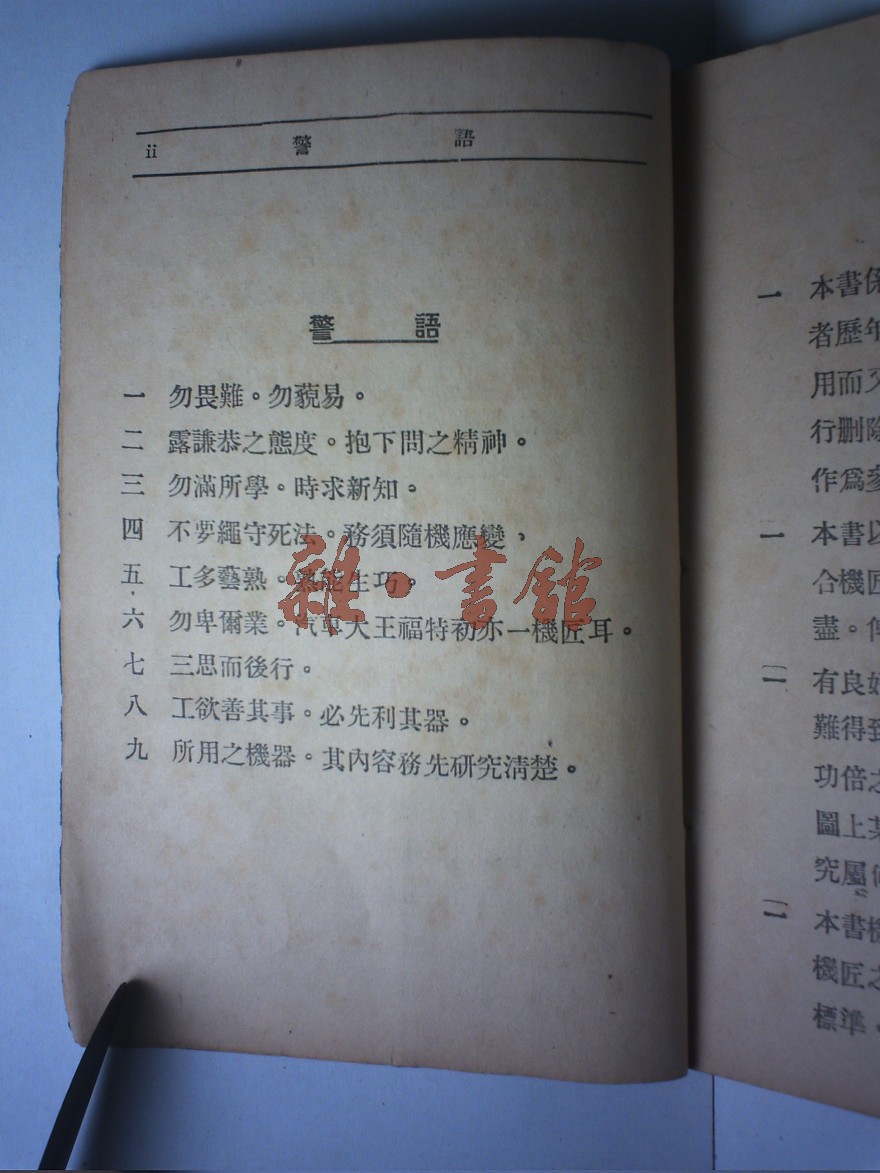 ii 警 語
警 語
一 勿畏難。勿藐易。
二 露謙恭之態度。抱下問之精神。
三 勿滿所學。時求新知。
四 不要繩守死法。務須隨機應變，
五 工多藝熟。熟能生巧。
六 勿卑爾業。汽車大王福特初亦一機匠耳。
七 三思而後行。
八 工欲善其事。必先利其器。
九 所用之機器。其內容務先研究淸楚。
雜·書館
一 本書係
者歷年
用而又
行刪除
作爲參
一 本書以
合機匠
盡。俾
一 有良好
難得到
功倍之
圖上某
究屬何
一 本書機
機匠之
標準。